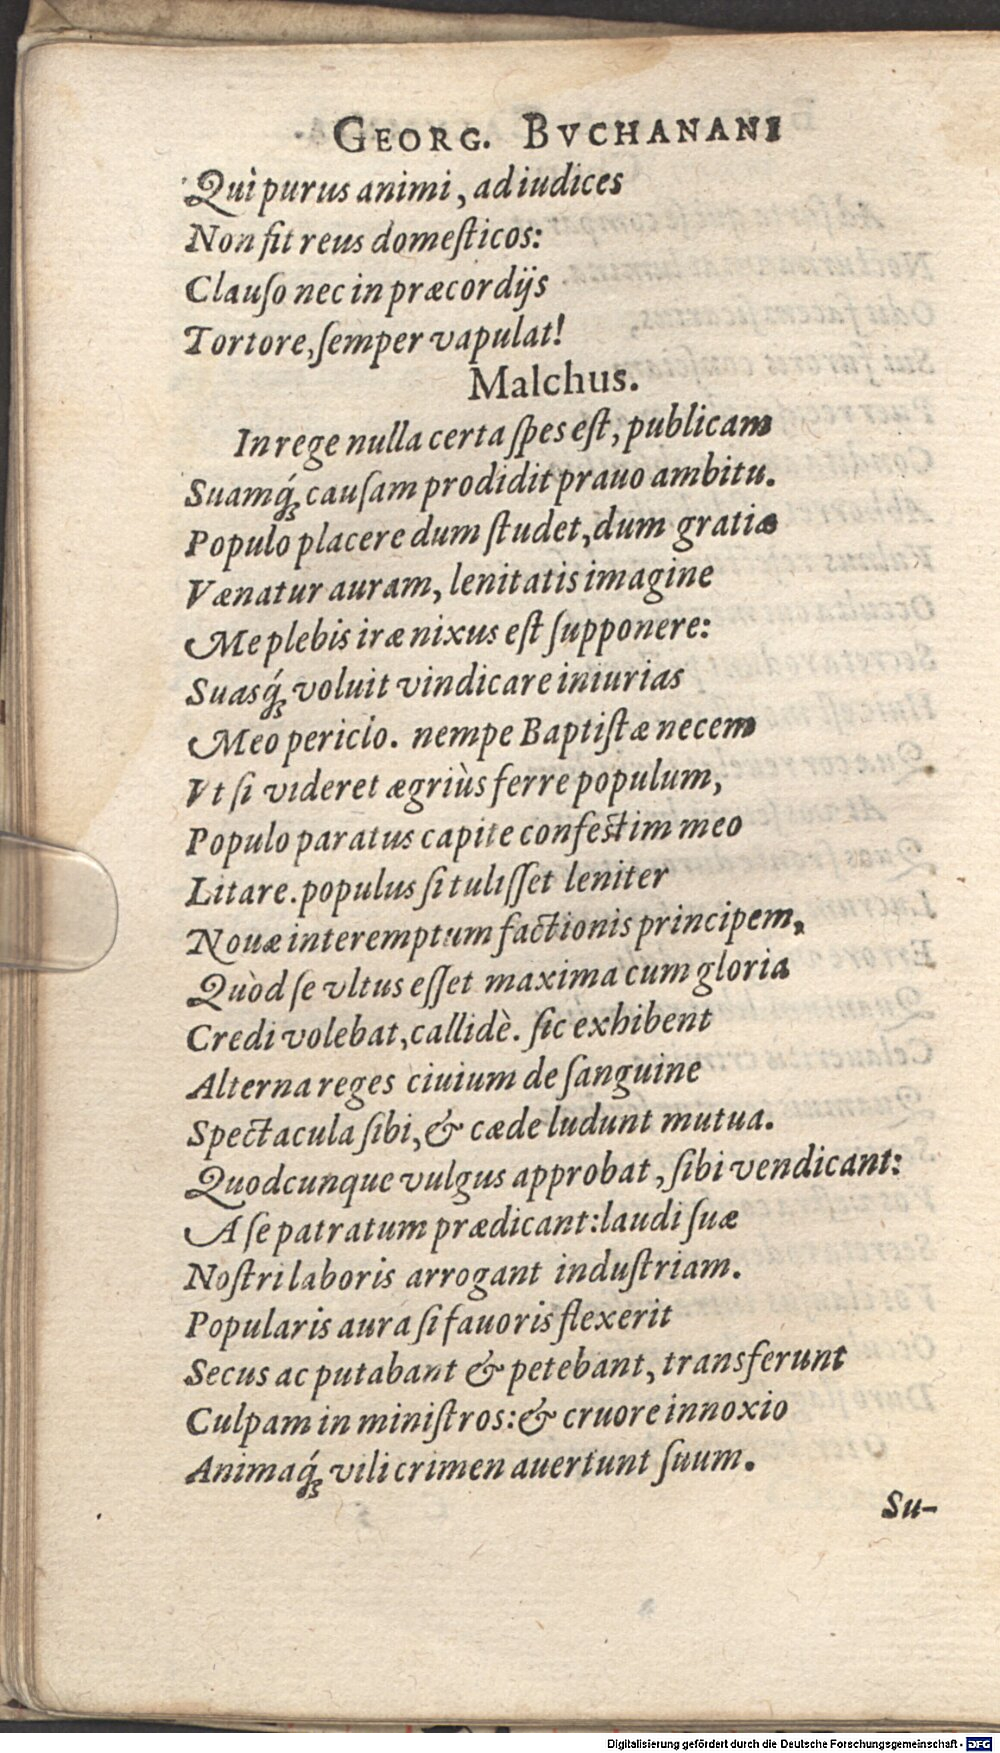 GEORG. BVCHANANI
Qui purus animi, ad iudices
Non fit reus domeſticos:
Clauſo nec in præcordijs
Tortore, ſemper vapulat!
Malchus.
In rege nulla certa ſpes eſt, publicam
Suamq́ꝫ cauſam prodidit prauo ambitu.
Populo placere dum ſtudet, dum gratiæ
Vænatur auram, lenitatis imagine
Me plebis iræ nixus eſt ſupponere:
Suasq́ꝫ voluit vindicare iniurias
Meo periclo. nempe Baptiſtæ necem
Vt ſi videret ægriùs ferre populum,
Populo paratus capite confeſtim meo
Litare. populus ſi tuliſſet leniter
Nouæ interemptum factionis principem,
Quòd ſe vltus eſſet maxima cum gloria
Credi volebat, callidè. ſic exhibent
Alterna reges ciuium de ſanguine
Spectacula ſibi, & cæde ludunt mutua.
Quodcunque vulgus approbat, ſibi vendicant:
A ſe patratum prædicant: laudi ſuæ
Noſtri laboris arrogant induſtriam.
Popularis aura ſi fauoris flexerit
Secus ac putabant & petebant, transferunt
Culpam in miniſtros: & cruore innoxio
Animaq́ꝫ vili crimen auertunt ſuum.
Su-
Digitalisierung gefördert durch die Deutsche Forschungsgemeinschaft - DFG